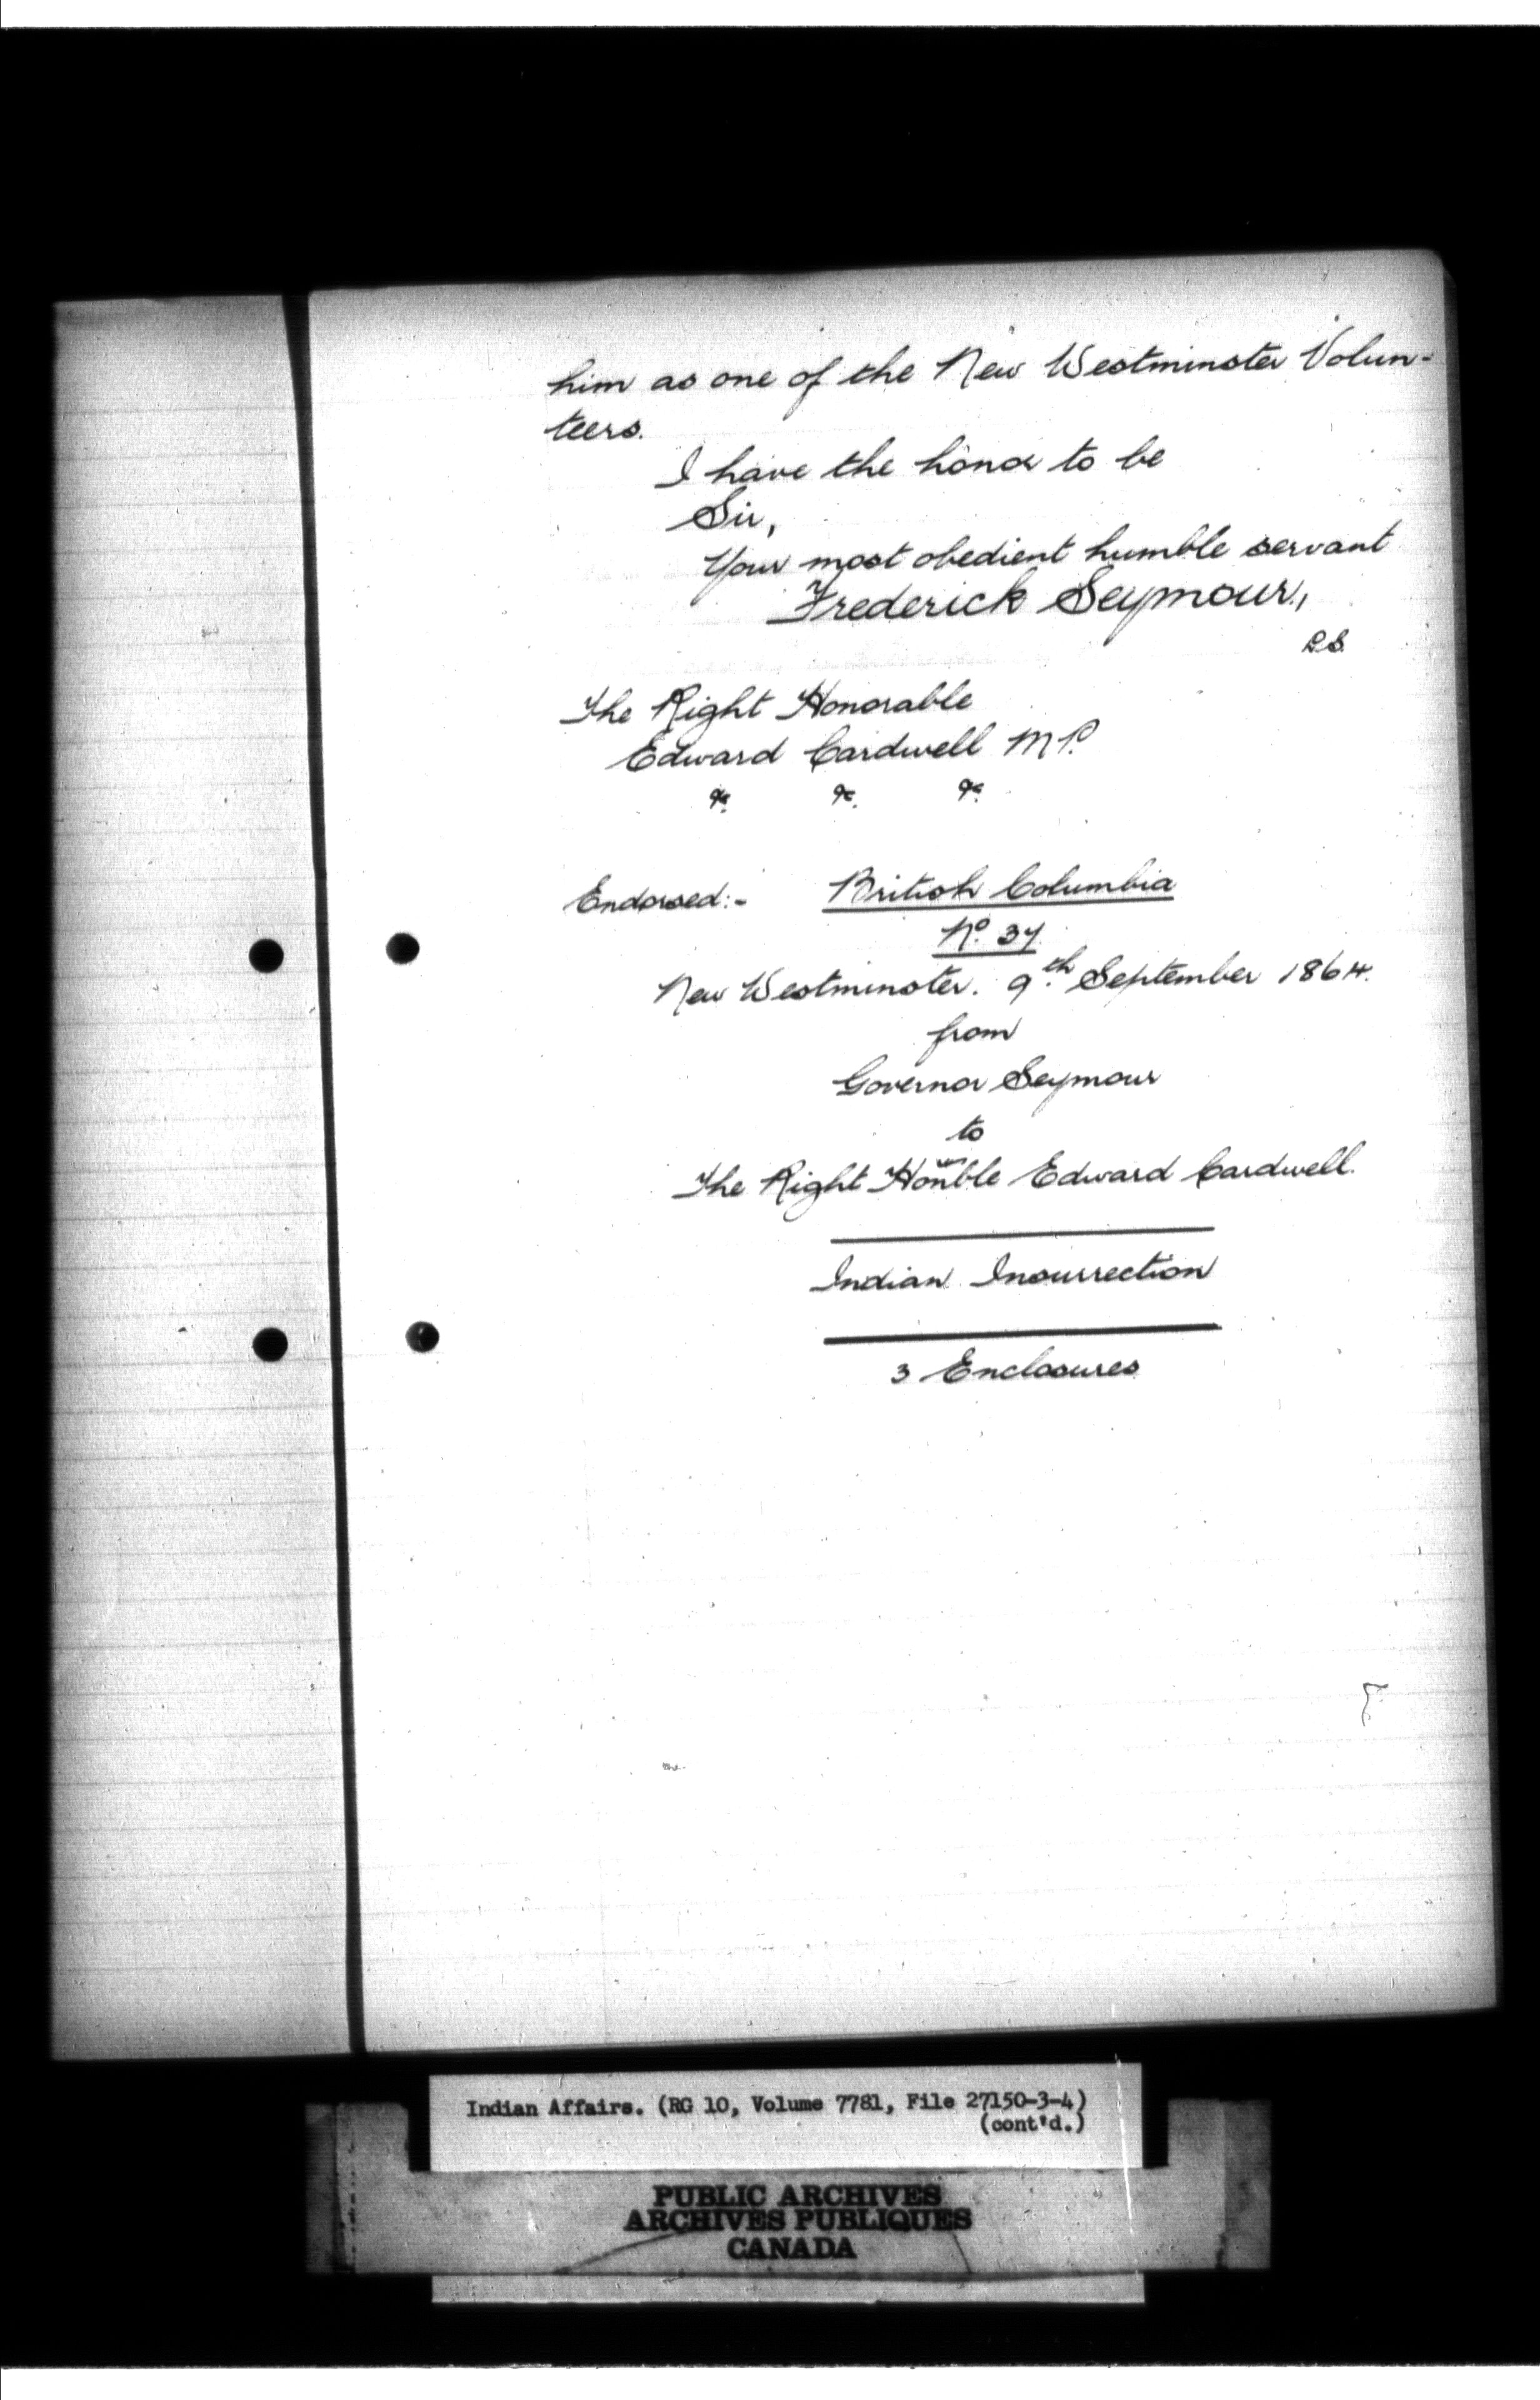 him as one of the New Westminster Volun-
teers.
I have the honor to be
Sir,
Your most obedient humble servant
Frederick Seymour.,
The Right Honorable
Edward Cardwell M.P.
&c. &c. &c.
Endorsed:- British Columbia
No. 37
New Westminster. 9th September 1864.
from
Governor Seymour
to
The Right Honble Edward Cardwell.
Indian Insurrection
3 Enclosures
Indian Affairs. (RG 10, Volume 7781, File 27150-3-4)
(cont'd.)
PUBLIC ARCHIVES
ARCHIVES PUBLIQUES
CANADA